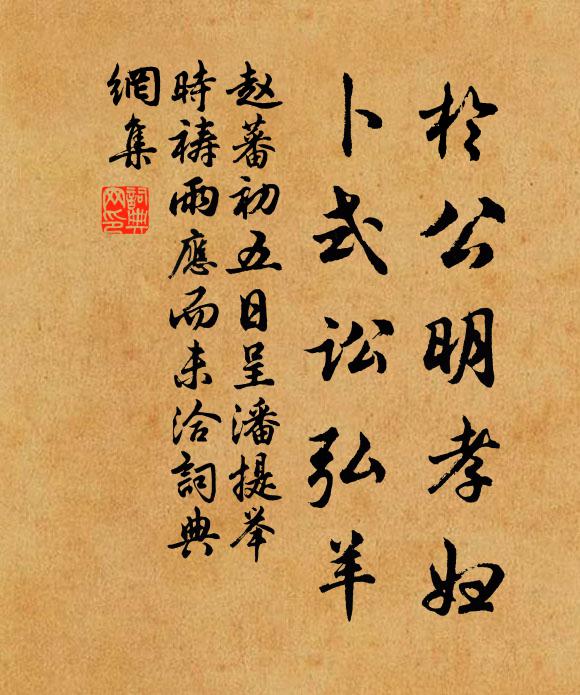 於公明孝妇
卜式讼弘羊
赵蕃初五日呈潘提举
时祷雨应而未洽词典
网集
词典网印